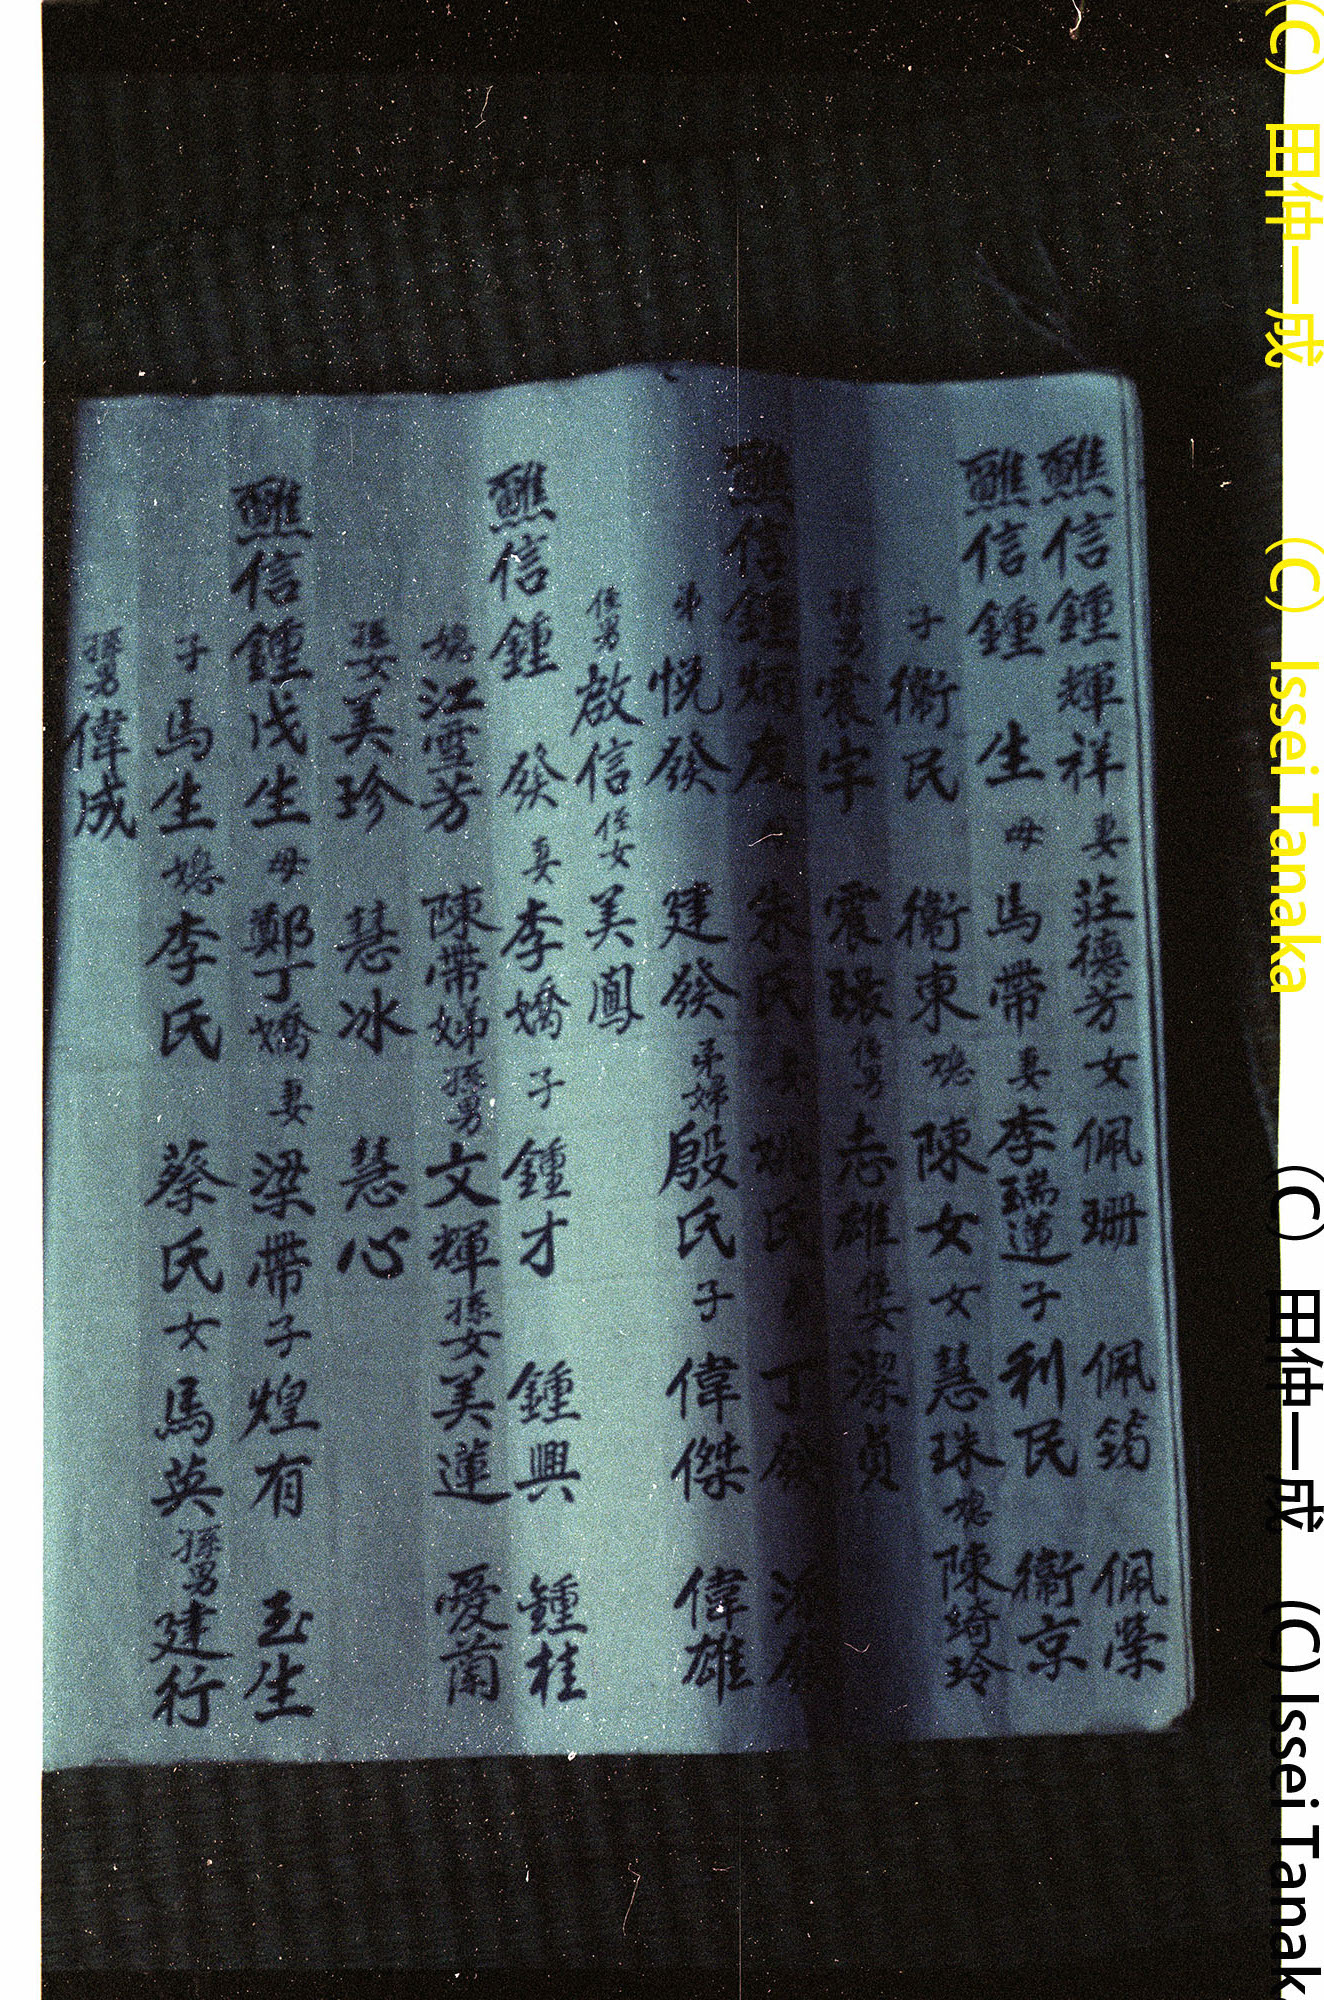 醮信鍾輝祥妻莊德芳女佩珊 佩筠 佩縈
醮信鍾 生母馬帶妻李瑞蓮子利民 衞京
子衞民 衞東媳陳女女慧珠媳陳綺玲
孫男震宇 震環侄男志雄侄女潔貞
醮信鍾炳友 朱氏 姚氏 丁發
弟悅發 建發弟婦殷氏子偉傑 偉雄
侄男啟信侄女美鳳
醮信鍾 發妻李嬌子鍾才 鍾興 鍾桂
媳江雪芳 陳帶娣孫男文輝孫女美蓮 愛蘭
孫女美珍 慧冰 慧心
醮信鍾戊生母鄭丁嬌妻梁帶子煌有 玉生
子馬生媳李氏 蔡氏女馬英孫男建行
孫男偉成
(C) 田仲一成 (C) Issei Tanaka
(C) 田仲一成 (C) Issei Tanak